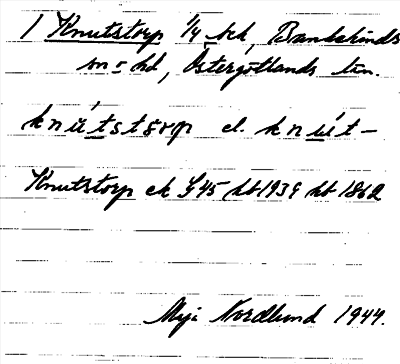 1 Knutstorp 1/4 hd, Bankekinds
sn o hd, Östergötlands län.
knútstorp el. knút-
Knutstorp ek G 45 hb 1939 hb 1862
Maja Nordlund 1944.